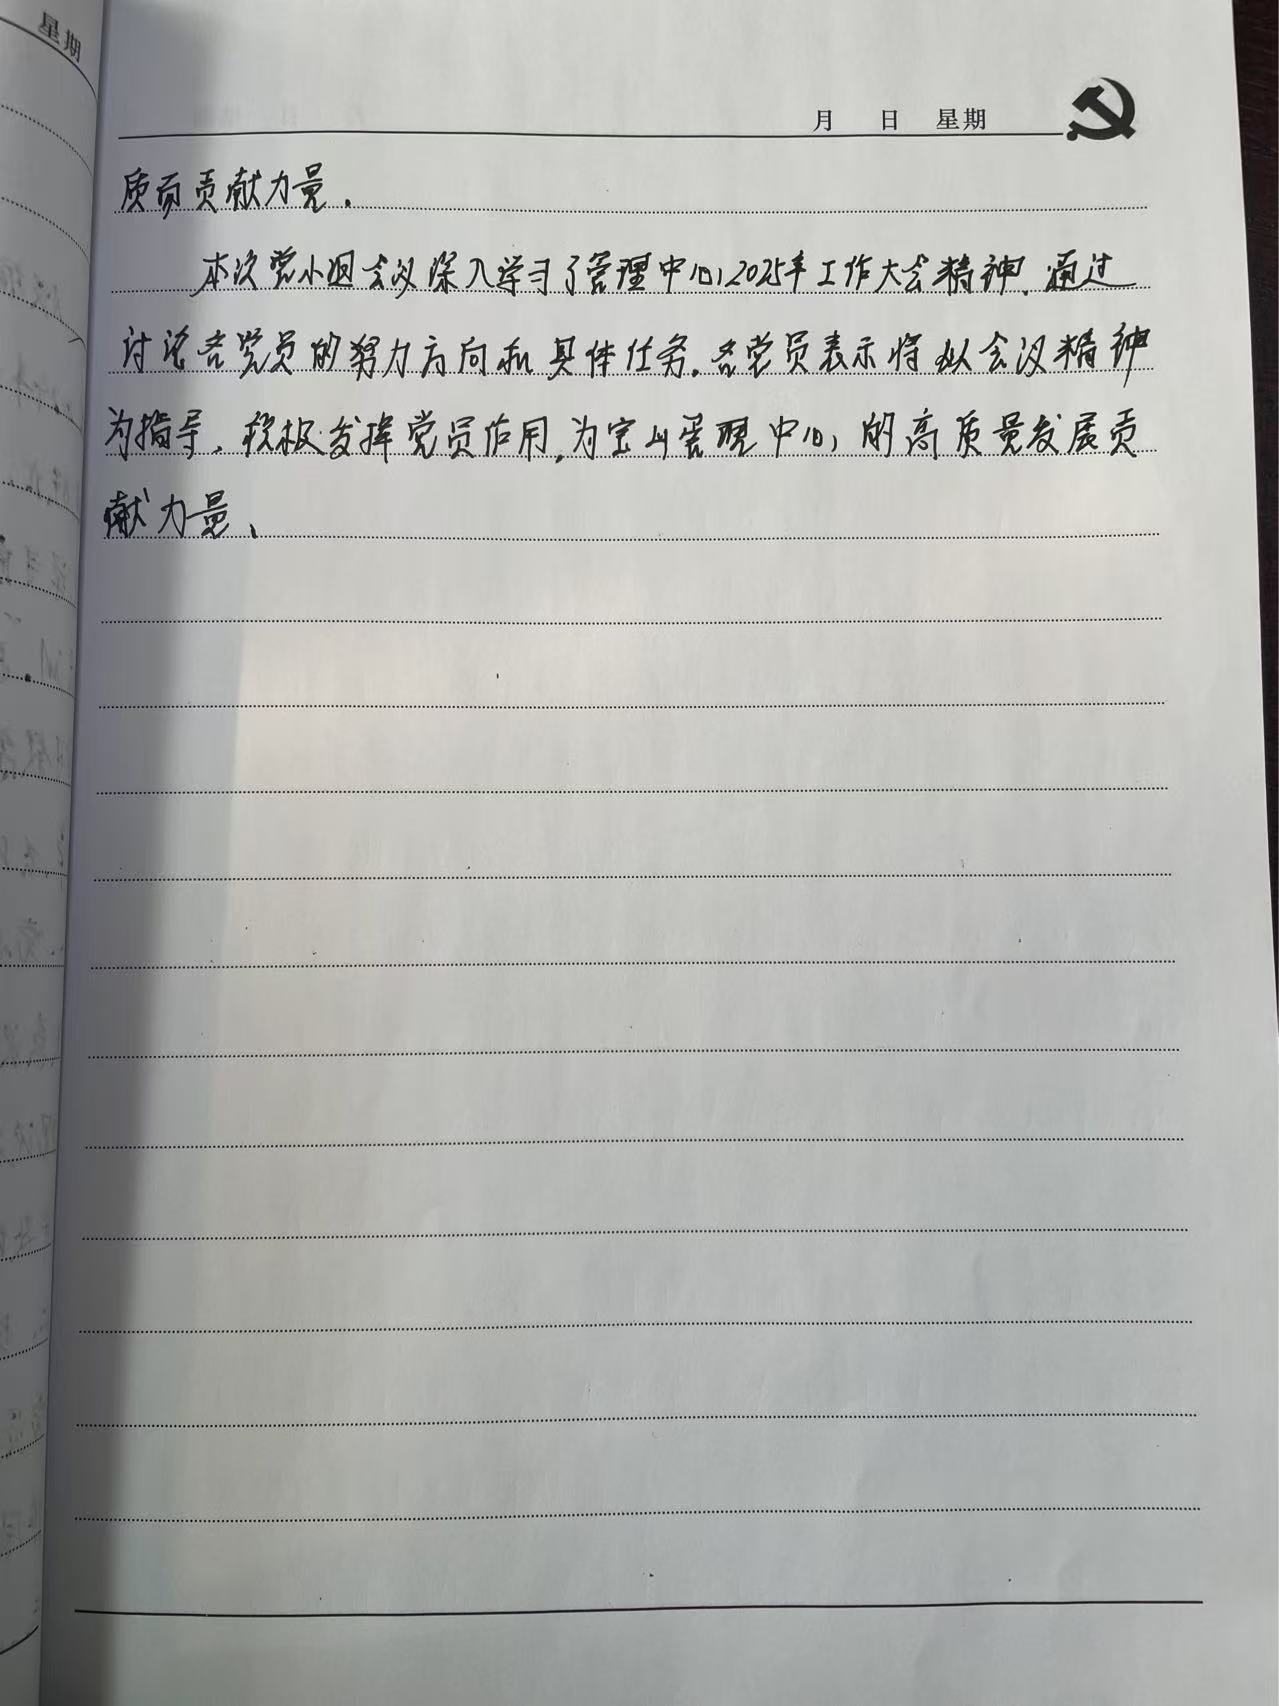 星期
月 日 星期
质而贡献力量.
本次党小组会议深入学习了管理中心2025年工作大会精神.通过
讨论各党员的努力方向和具体任务.各党员表示将以会议精神
为指导,积极发挥党员作用,为宝山管理中心的高质量发展贡
献力量、